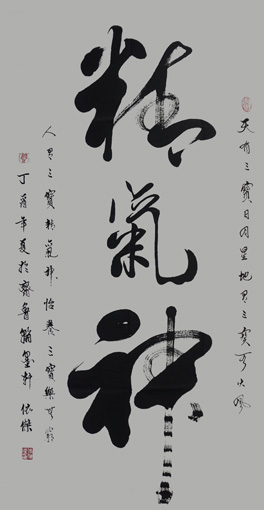 天有三寶日月星地有三寶水火風
精氣神
人有三寶精氣神怡養三寶
丁酉年夏於齊魯翰墨軒